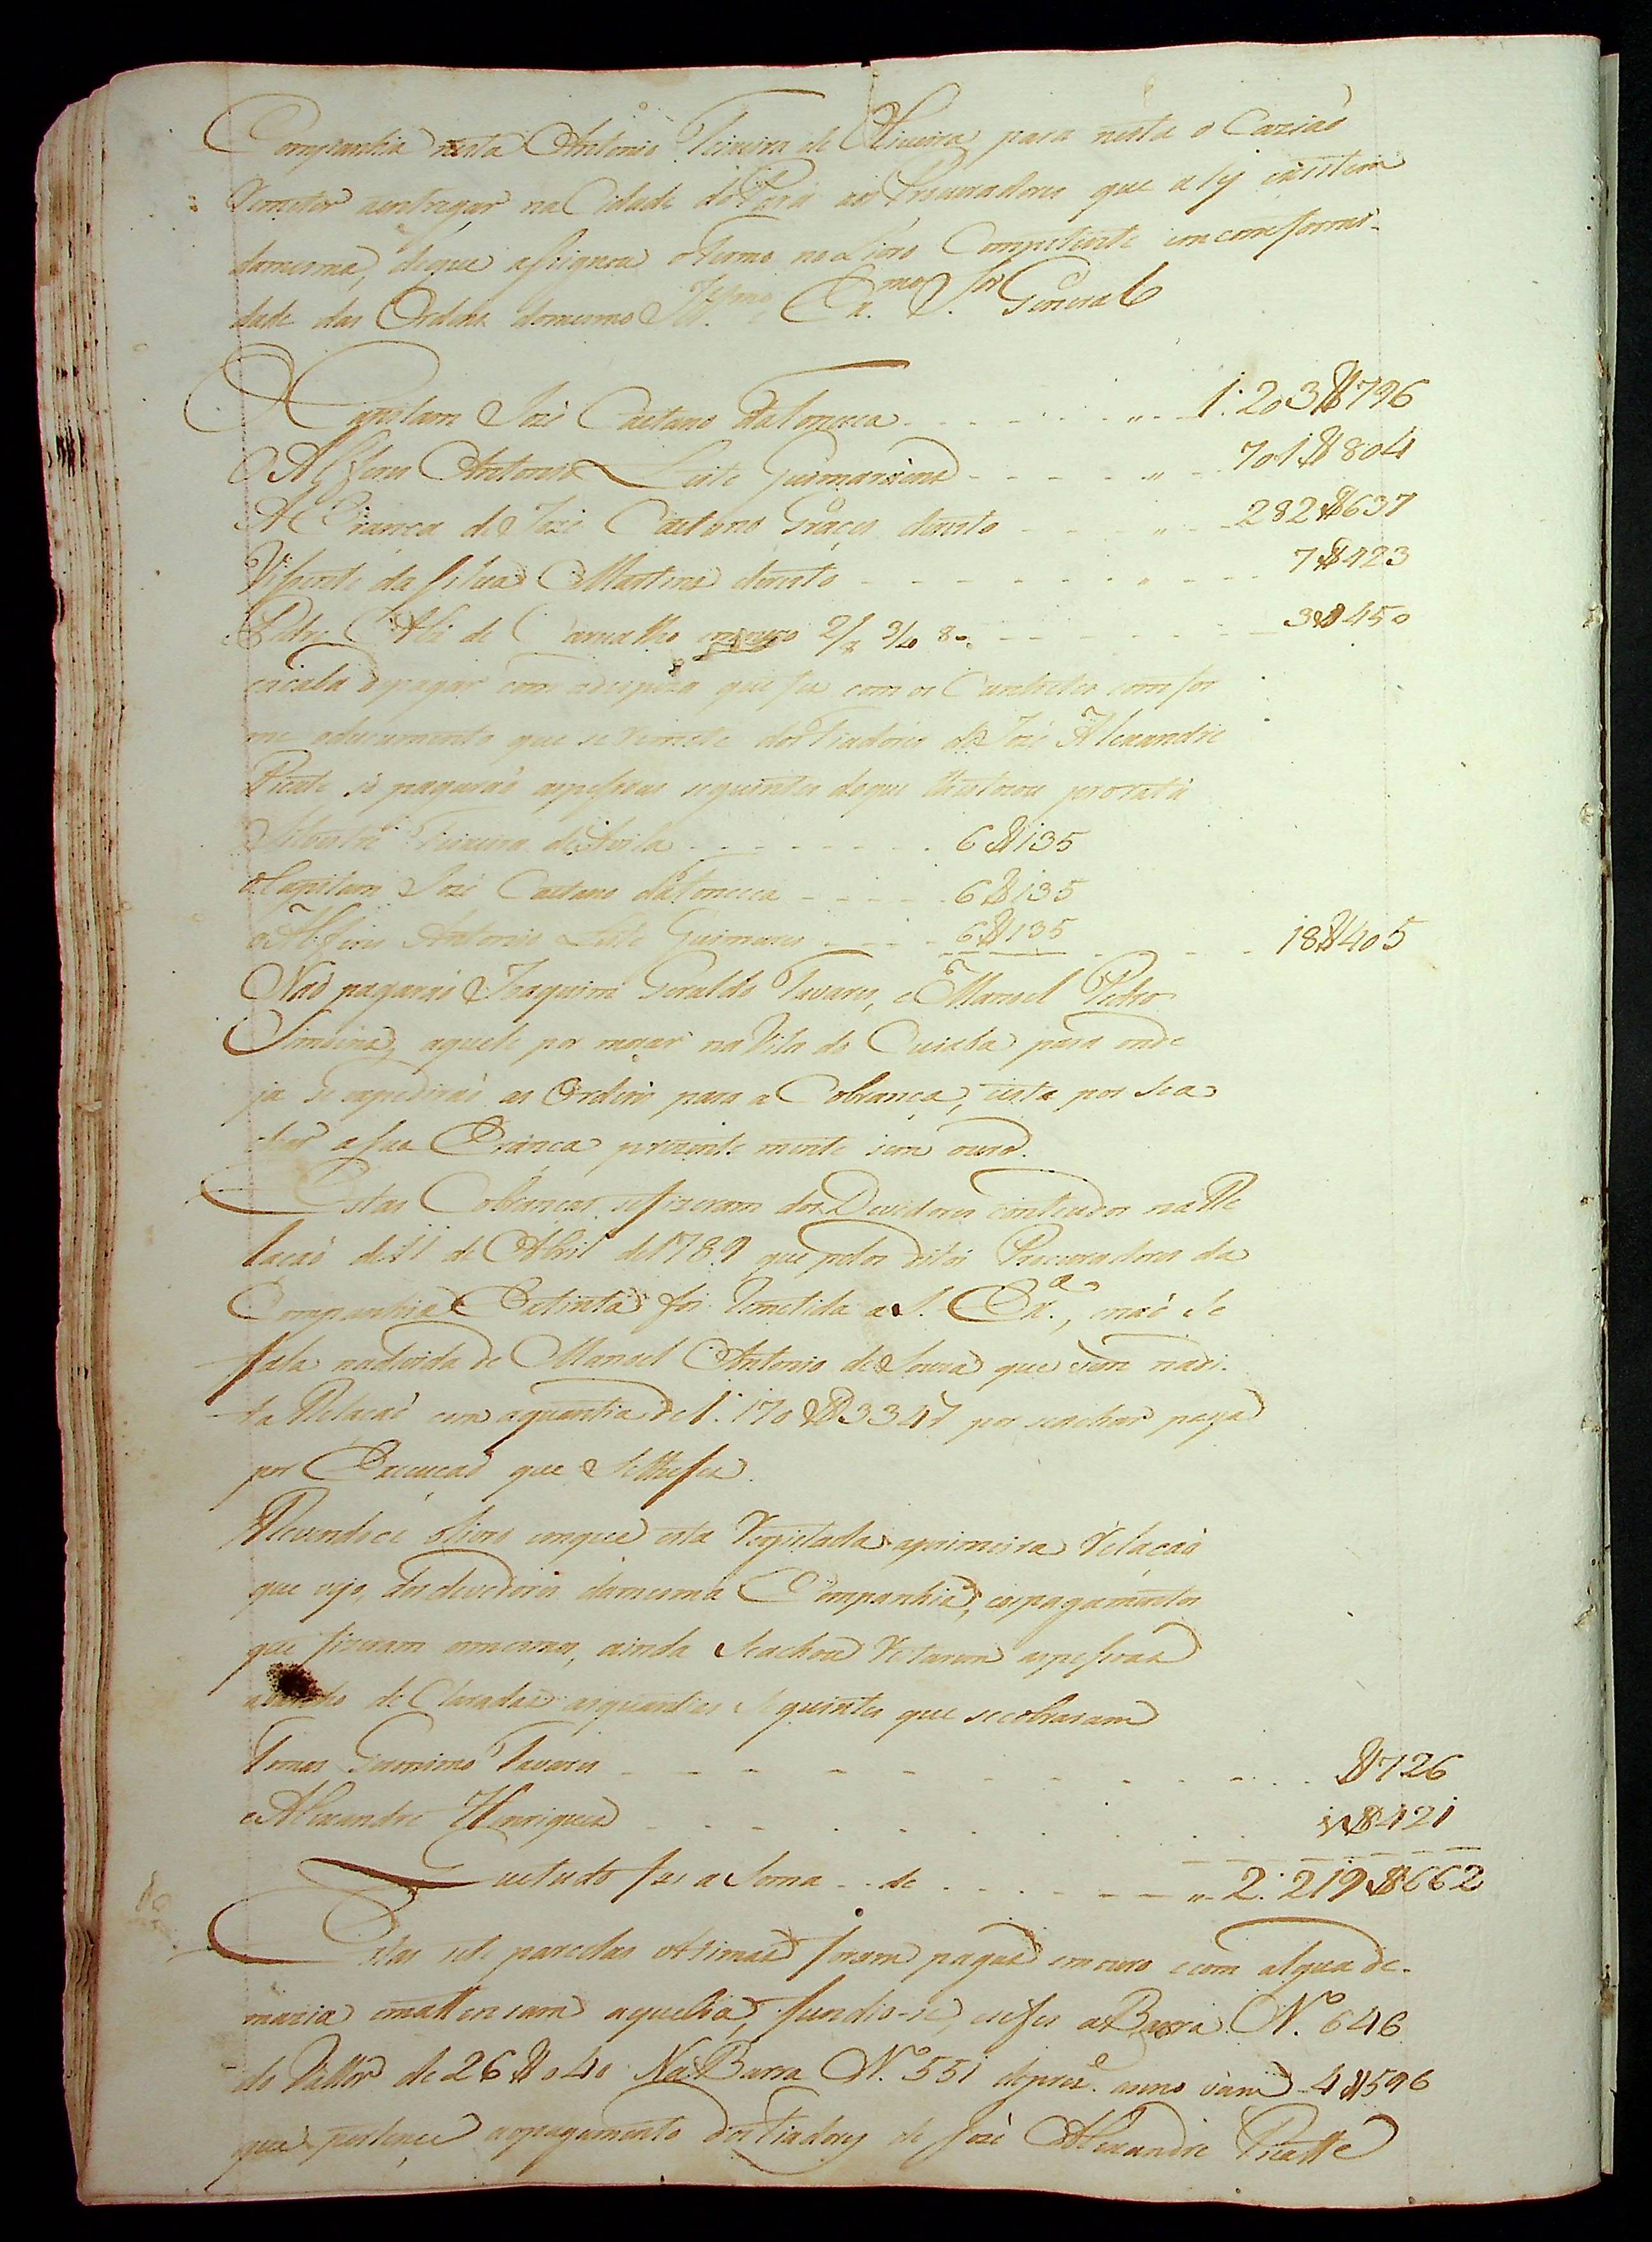 Companhia nesta Antonio Teixeira de Oliveira para nesta o Cazião
Remeter aentregar na Cidade do Pará aos Procuradores que aly existem
damesma, deque assignou oTermo no Livro Competente em comformi-
dade das Ordens domesmo Ill.mo e Ex.mo S.or General
O Capitam Jozé Caetano daFonceca - - - - - „ - 1:203$796
O Alferes Antonio Leite Guimaraens - - - - „ - 701$804
A Erança de Jozé Caetano Graçes devêto - - - „ - 282$637
Visente da Silva Martins devoto - - - - - - - 7$423
Pedro Alz de Carvalho emouro 2/8 3/4 8 - - - - - - 3$450
eicala dpagar com adespeza que fez com os Cunhetes comfor
me odocumento que se Remete dos Fiadores de Jozé Alexandre
Picate só pagarão aspessoas seguintes doque lhestocou prorata
Silvestre Teixeira de Avila - - - - - - - 6$135
oCapitam Jozé Caetano daFonceca - - - - - 6$135
oAlferes Antonio Leite Guimares - - - - 6$135 - - - - 18$405
Não pagarão Joaquim Geraldo Tavares, e Manoel Pedro
Simoens, aquele por morar na Vila do Cuiaba para onde
ja se expedirão as Ordens para a Cobrança, eesta por sea
char a sua Erança prezente mente sem ouro.
Estas Cobranças sefizeram dos Devedores conteudos naRe
lacaõ de11 de Abril de1789 que pelos ditos Procuradores da
Companhia Estinta foi Remetida a S. Ex.a, enaõ se
fala nadivida de Manoel Antonio de Souza que vem nadi-
ta Relacaõ com aquantia de 1:170$3347 por seachar paga
por Execuçaõ que Selhefes.
Revendoce oLivro emque esta Regristada aprimeira Relaçaõ
que vejo, dos devedores damesma Companhia, eospagamentos
que fizeram osmesmos, ainda Seachou Restarem aspessoas
abaixo de Claradas asquantias Seguintes que secobraram
Tomas Geronimo Tavares - - - - - - - - - - $726
eAlexandre Henriques - - - - - - - - - 1$421
Quetudo faz a Soma - - de - - - - - - „ 2:219$662
Estas sete parcelas ultimas foram pagas emouro ecom algua de-
mazia emattensam aquebra, fundio-se, esefes aBarra N.o 646
do Vallor de 26$040 NaBarra N.o 551 doprez.e anno vam 4$596
que pertençe aopagamento dosFiadores de Jozé Alexandre Picatte